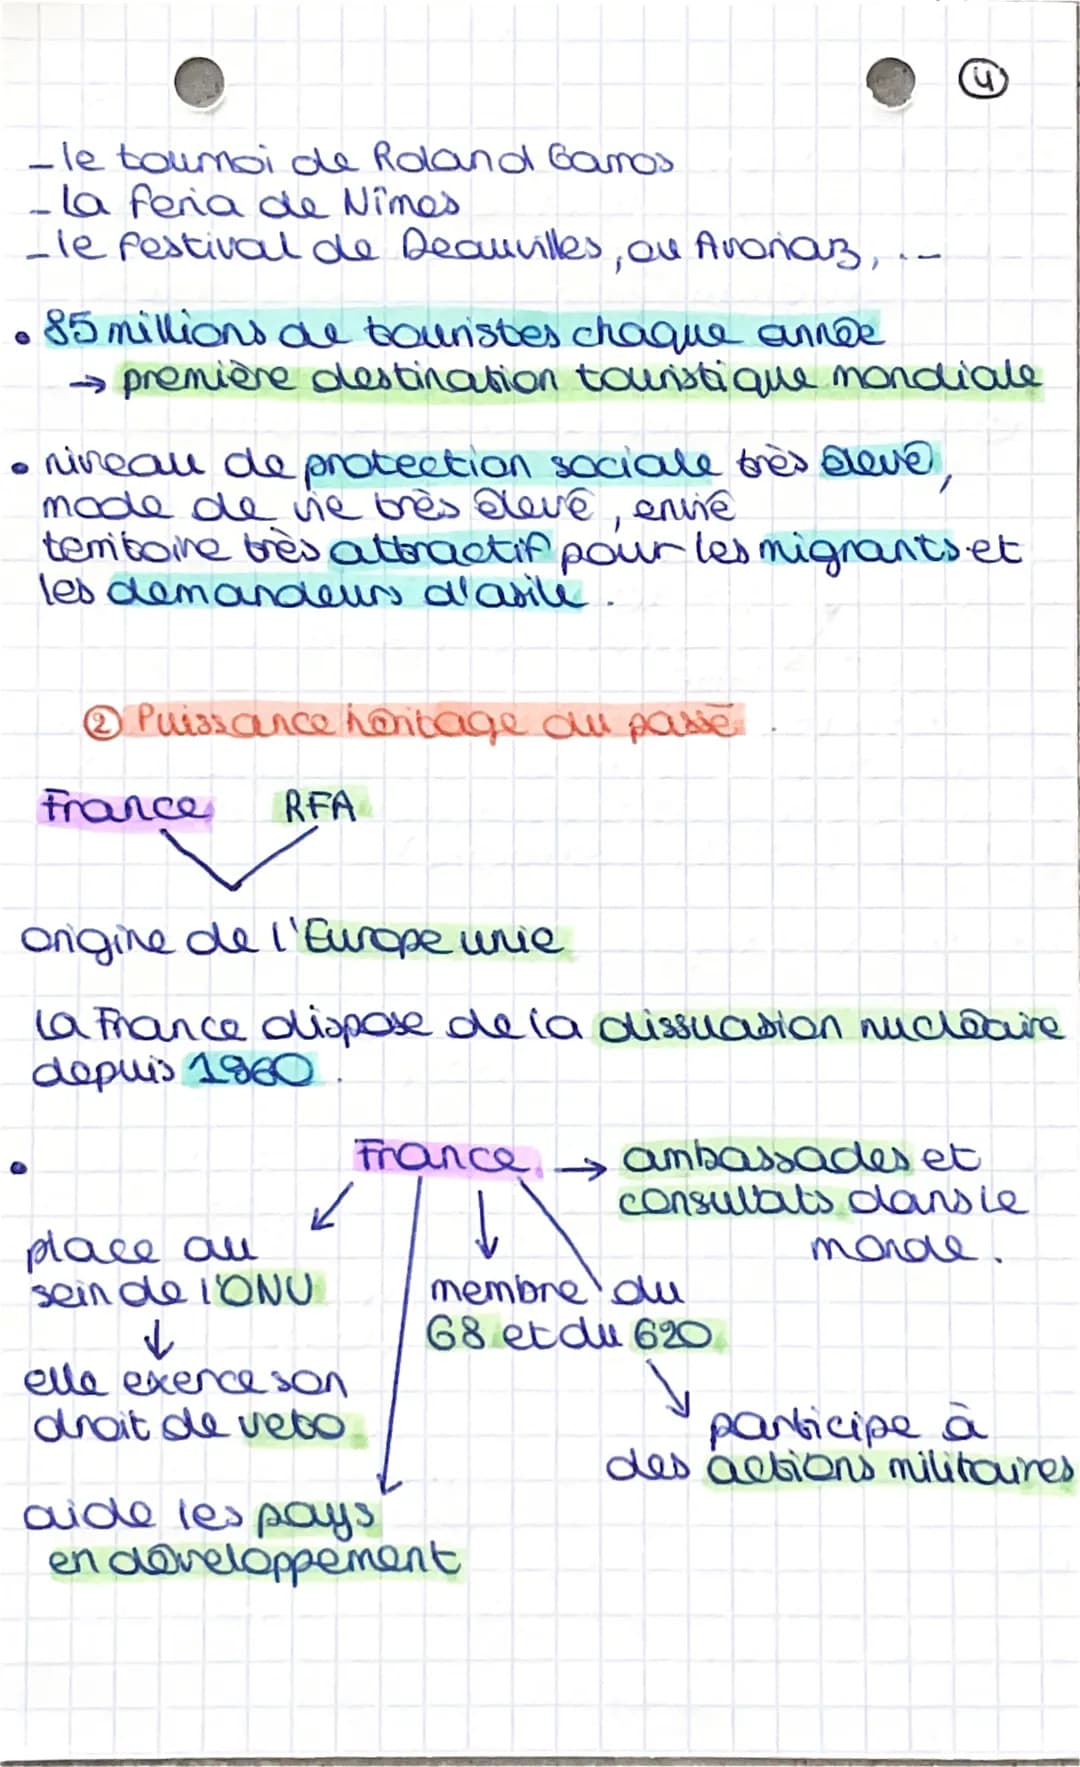 ④
- le tournoi de Roland Garros
- la feria de Nîmes
- le festival de Deauvilles, ou Avoriaz, ...
• 85 millions de touristes chaque année
→ première destination touristique mondiale
• niveau de protection sociale très élevé,
mode de vie très élevé, envié
territoire très attractif pour les migrants et
les demandeurs d'asile.
② Puissance héritage du passé.
France RFA
origine de l'Europe unie
la France dispose de la dissuasion nucléaire
depuis 1960.
• France → ambassades et
consultats dans le
monde.
place au
sein de l'ONU
↓
elle exerce son
droit de veto
membre du
G8 et du G20
participe à
des actions militaires
aide les pays
en développement